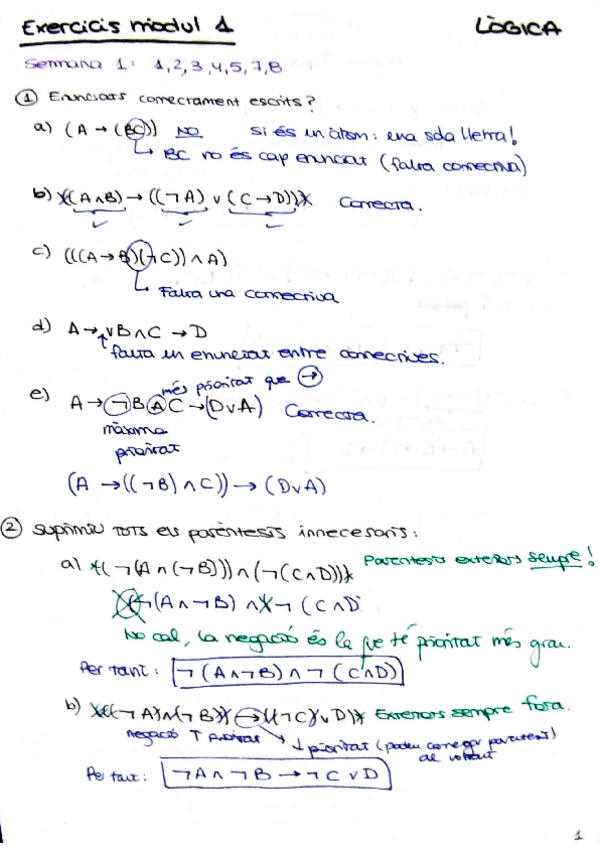 Exercicis mòdul 1 LÒGICA
Semana 1: 1,2,3,4,5,7,8
① Enunciats correctament escrits?
a) (A → (BC)) NO si és un àtom: una sola lletra!
↳ BC no és cap enunciat (falta connectiva)
b) ((A ∧ B) → ((¬A) ∨ (C → D))) Correcta.
c) (((A → B)(¬C)) ∧ A)
↳ Falta una connectiva
d) A → ∨ B ∧ C → D
↑ falta un enunciat entre connectives.
més prioritat que →
e) A → ¬B ∧ C → (D ∨ A) Correcta.
màxima
prioritat
(A → ((¬B) ∧ C)) → (D ∨ A)
② Suprimiu TOTS els parèntesis innecesaris:
a) ((¬(A ∧ (¬B))) ∧ (¬(C ∧ D))) Parèntesis exteriors sempre!
(¬(A ∧ ¬B) ∧ (¬(C ∧ D
No cal, la negació és la que té prioritat més gran.
Per tant: ¬(A ∧ ¬B) ∧ ¬(C ∧ D)
b) (((¬A) ∧ (¬B)) → ((¬C) ∨ D)) Exteriors sempre fora.
negació ↑ prioritat ↓ prioritat (podeu carregar parèntesis)
al voltant
Per tant: ¬A ∧ ¬B → ¬C ∨ D
1